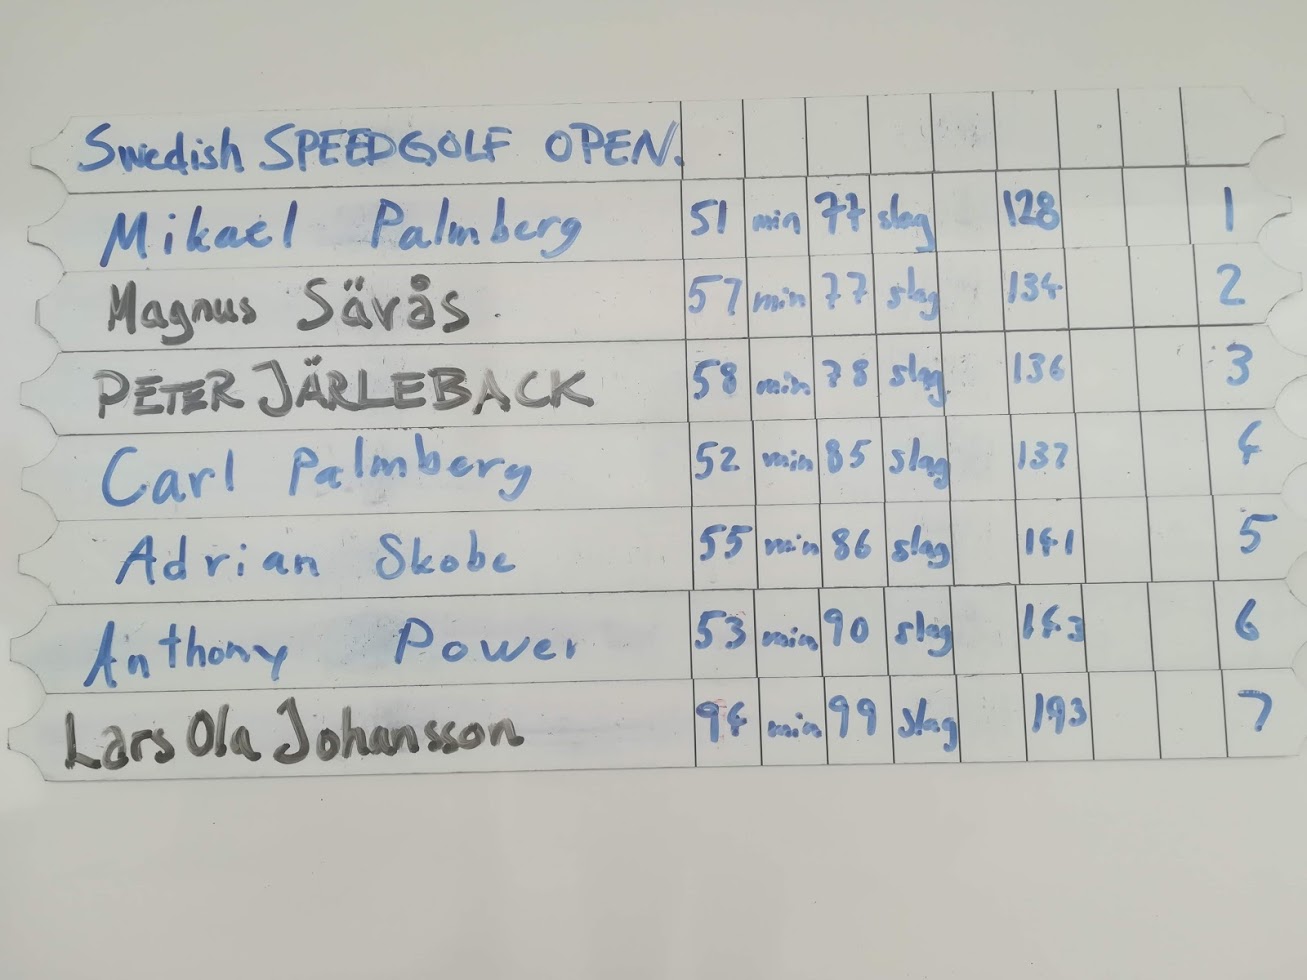 Swedish SPEEDGOLF OPEN.
Mikael Palmberg 51 min 77 slag 128 1
Magnus Säväs 57 min 77 slag 134 2
PETER JÄRLEBACK 58 min 78 slag 136 3
Carl Palmberg 52 min 85 slag 137 4
Adrian Skobe 55 min 86 slag 141 5
Anthony Power 53 min 90 slag 143 6
Lars Ola Johansson 94 min 99 slag 193 7